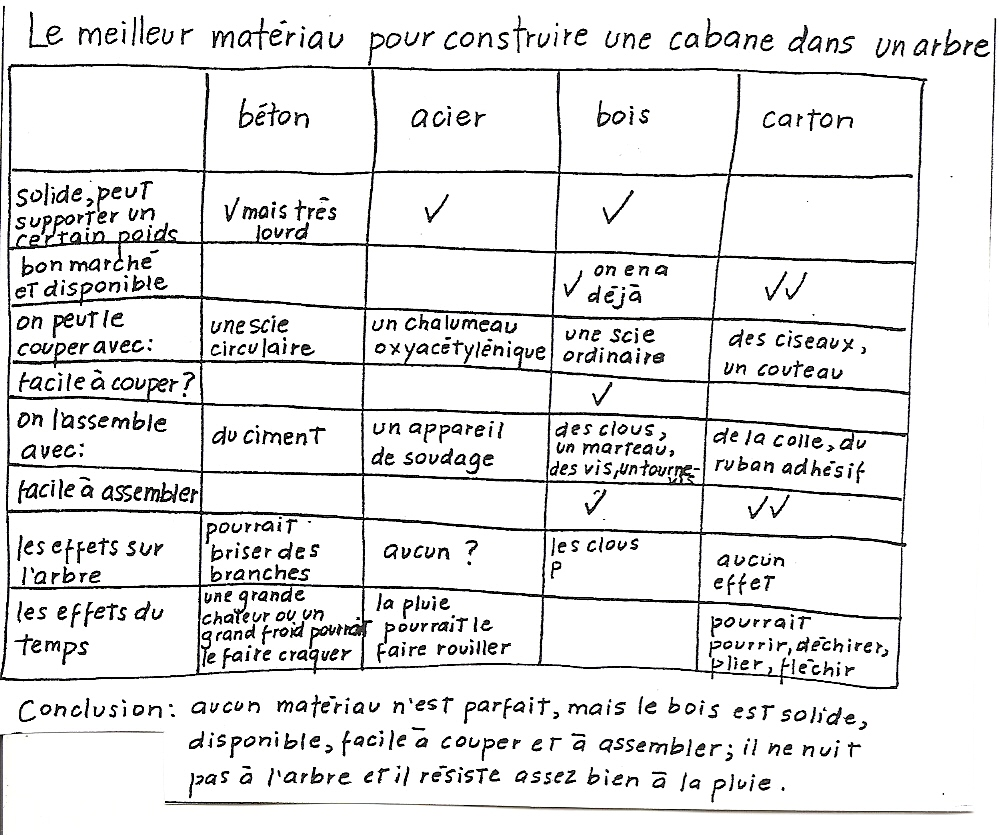 Le meilleur matériau pour construire une cabane dans un arbre
béton acier bois carton
solide, peut
supporter un
certain poids
√ mais très
lourd
✓
✓
bon marché
et disponible
✓ on en a
déjà
✓✓
on peut le
couper avec:
une scie
circulaire
un chalumeau
oxyacétylénique
une scie
ordinaire
des ciseaux,
un couteau
facile à couper?
✓
on l'assemble
avec:
du ciment
un appareil
de soudage
des clous,
un marteau,
des vis, un tourne-
vis
de la colle, du
ruban adhésif
facile à assembler
✓
✓✓
les effets sur
l'arbre
pourrait
briser des
branches
aucun ?
les clous
P
aucun
effet
les effets du
temps
une grande
chaleur ou un
grand froid pourrait
le faire craquer
la pluie
pourrait le
faire rouiller
pourrait
pourrir, déchirer,
plier, fléchir
Conclusion: aucun matériau n'est parfait, mais le bois est solide,
disponible, facile à couper et à assembler; il ne nuit
pas à l'arbre et il résiste assez bien à la pluie.